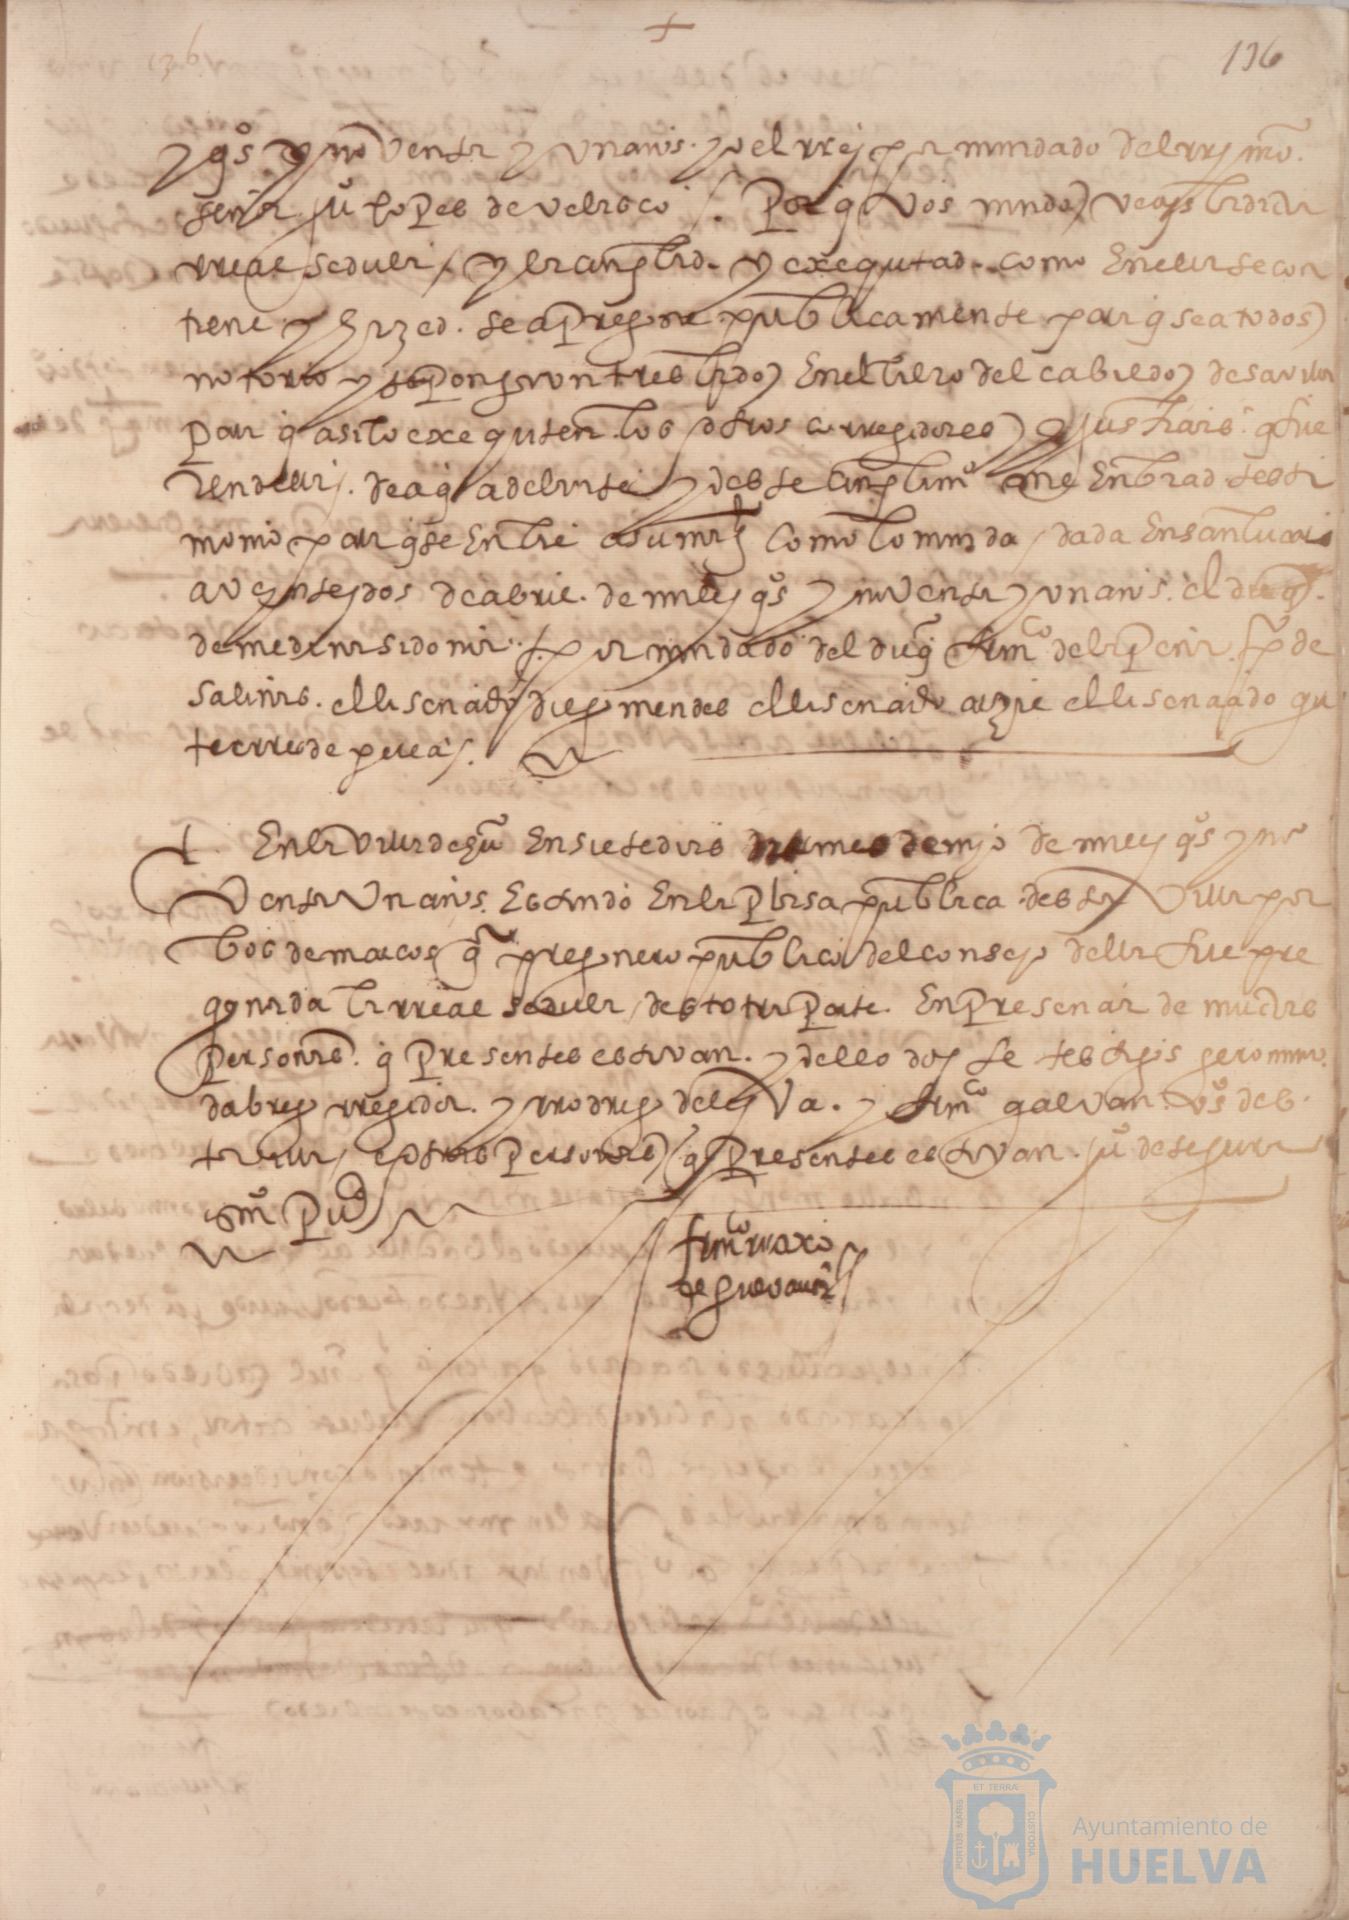 136
136
y qs y noventa y un años. yo el rrey por mandado del rrey nro.
señor juº lopes de velasco. Por q vos mando veays la dicha
rreal sedula y la cunplid. y executad. como en ella se con
tiene y hazed. se apregone publicamente para q sea todos
notorio y se ponga un treslado en el libro del cabildo desa villa
para q asi lo executen los otros corregidores y justiçias. q fue
ren della. de aqi adelante y deste cunplimº me enbiad testi
monio para q se enbie a su magd como lo manda dada en sanlucar
a veynte y dos de abril. de mill y qs y noventa y un años. el duq.
de medina sidonia. por mandado del duq franco de la peña. po de
salinas. el lisenciado diego mendes el lisenciado arze el lisenciado gu
tierres de pereas.
En la villa de gu en siete dias del mes de mayo de mill y qs y no
venta un años. Estando en la plasa publica desta villa por
bos de marcos pregonero publico del consejo della fue pre
gonada la rreal sedula desta otra parte. En presencia de muchas
personas. q presentes estavan. y dello doy fe testigos geronimo.
dabrego rregidor. y rrodrigo de leyva. y franco galvan. vs des
ta villa e otras personas q presentes estavan. juº de segura
esno puco
franco
de guevara
ET TERRAE
PORTUS MARIS
CUSTODIA
Ayuntamiento de
HUELVA